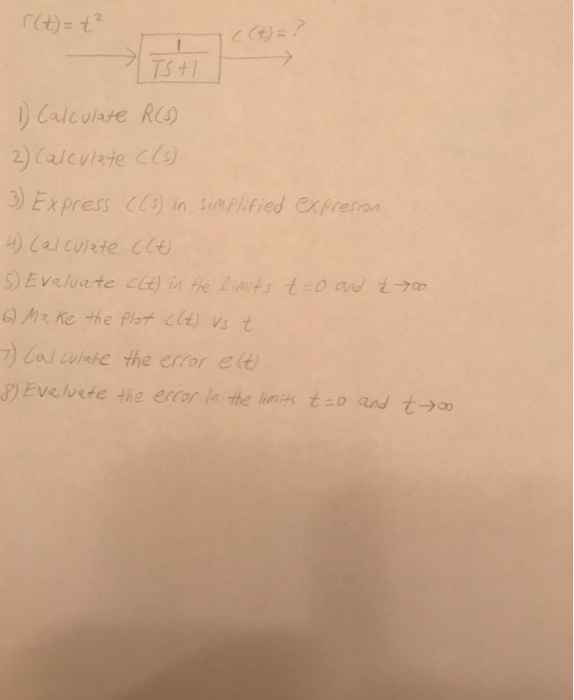 r(t) = t²
c(t) = ?
1
TS+1
1) Calculate R(s)
2) Calculate C(s)
3) Express C(s) in simplified expresion
4) Calculate c(t)
5) Evaluate c(t) in the limits t=0 and t→∞
6) Make the plot c(t) vs t
7) Calculate the error e(t)
8) Evaluate the error in the limits t=0 and t→∞